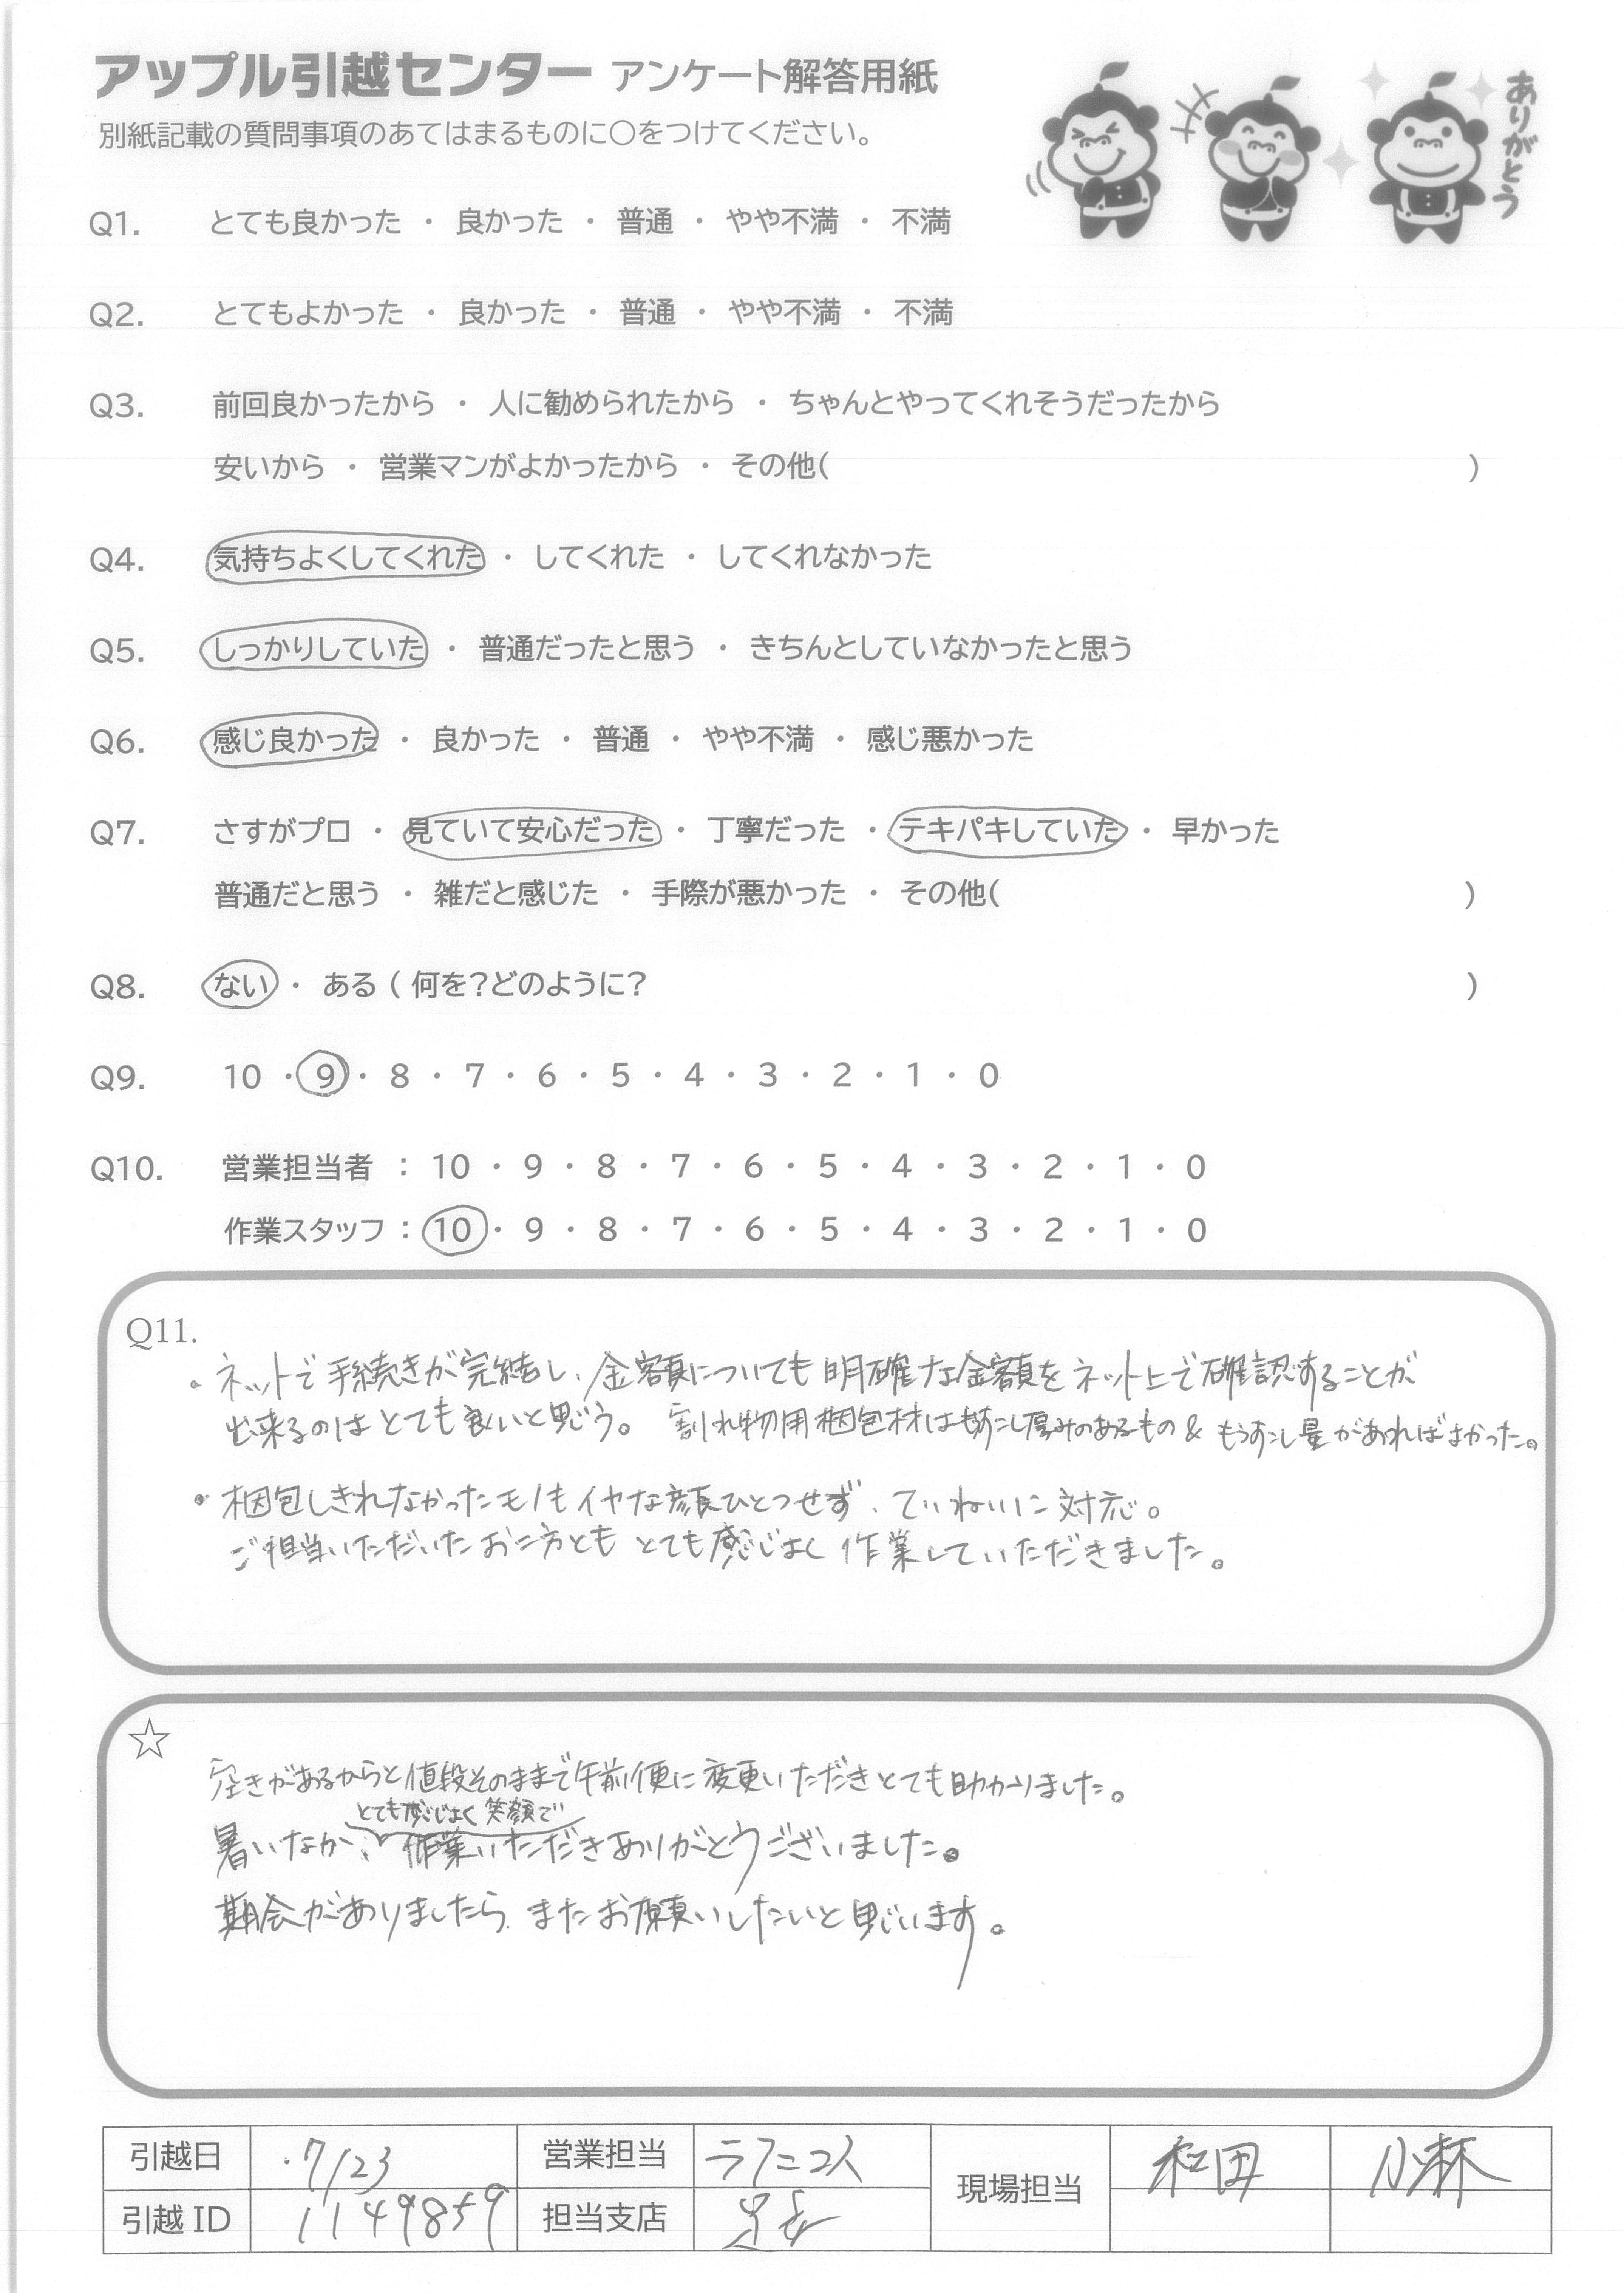 アップル引越センター アンケート解答用紙
別紙記載の質問事項のあてはまるものに○をつけてください。
ありがとう
Q1. とても良かった ・ 良かった ・ 普通 ・ やや不満 ・ 不満
Q2. とてもよかった ・ 良かった ・ 普通 ・ やや不満 ・ 不満
Q3. 前回良かったから ・ 人に勧められたから ・ ちゃんとやってくれそうだったから
安いから ・ 営業マンがよかったから ・ その他( )
Q4. 気持ちよくしてくれた ・ してくれた ・ してくれなかった
Q5. しっかりしていた ・ 普通だったと思う ・ きちんとしていなかったと思う
Q6. 感じ良かった ・ 良かった ・ 普通 ・ やや不満 ・ 感じ悪かった
Q7. さすがプロ ・ 見ていて安心だった ・ 丁寧だった ・ テキパキしていた ・ 早かった
普通だと思う ・ 雑だと感じた ・ 手際が悪かった ・ その他( )
Q8. ない ・ ある ( 何を?どのように? )
Q9. 10 ・ 9 ・ 8 ・ 7 ・ 6 ・ 5 ・ 4 ・ 3 ・ 2 ・ 1 ・ 0
Q10. 営業担当者 : 10 ・ 9 ・ 8 ・ 7 ・ 6 ・ 5 ・ 4 ・ 3 ・ 2 ・ 1 ・ 0
作業スタッフ : 10 ・ 9 ・ 8 ・ 7 ・ 6 ・ 5 ・ 4 ・ 3 ・ 2 ・ 1 ・ 0
Q11.
。ネットで手続きが完結し、金額についても明確な金額をネット上で確認することが
出来るのはとても良いと思う。 割れ物用梱包材はもう少し厚みのあるもの & もうすこし量があればよかった。
・梱包しきれなかったモノもイヤな顔ひとつせず、ていねいに対応。
ご担当いただいたお二方とも とても感じよく 作業していただきました。
☆
空きがあるからと値段そのままで午前便に変更いただきとても助かりました。
とても感じよく 笑顔で
暑いなか、作業いただきありがとうございました。
期会がありましたら、またお願いしたいと思います。
引越日 7/23 営業担当 現場担当 和田 小林
引越 ID 1149859 担当支店